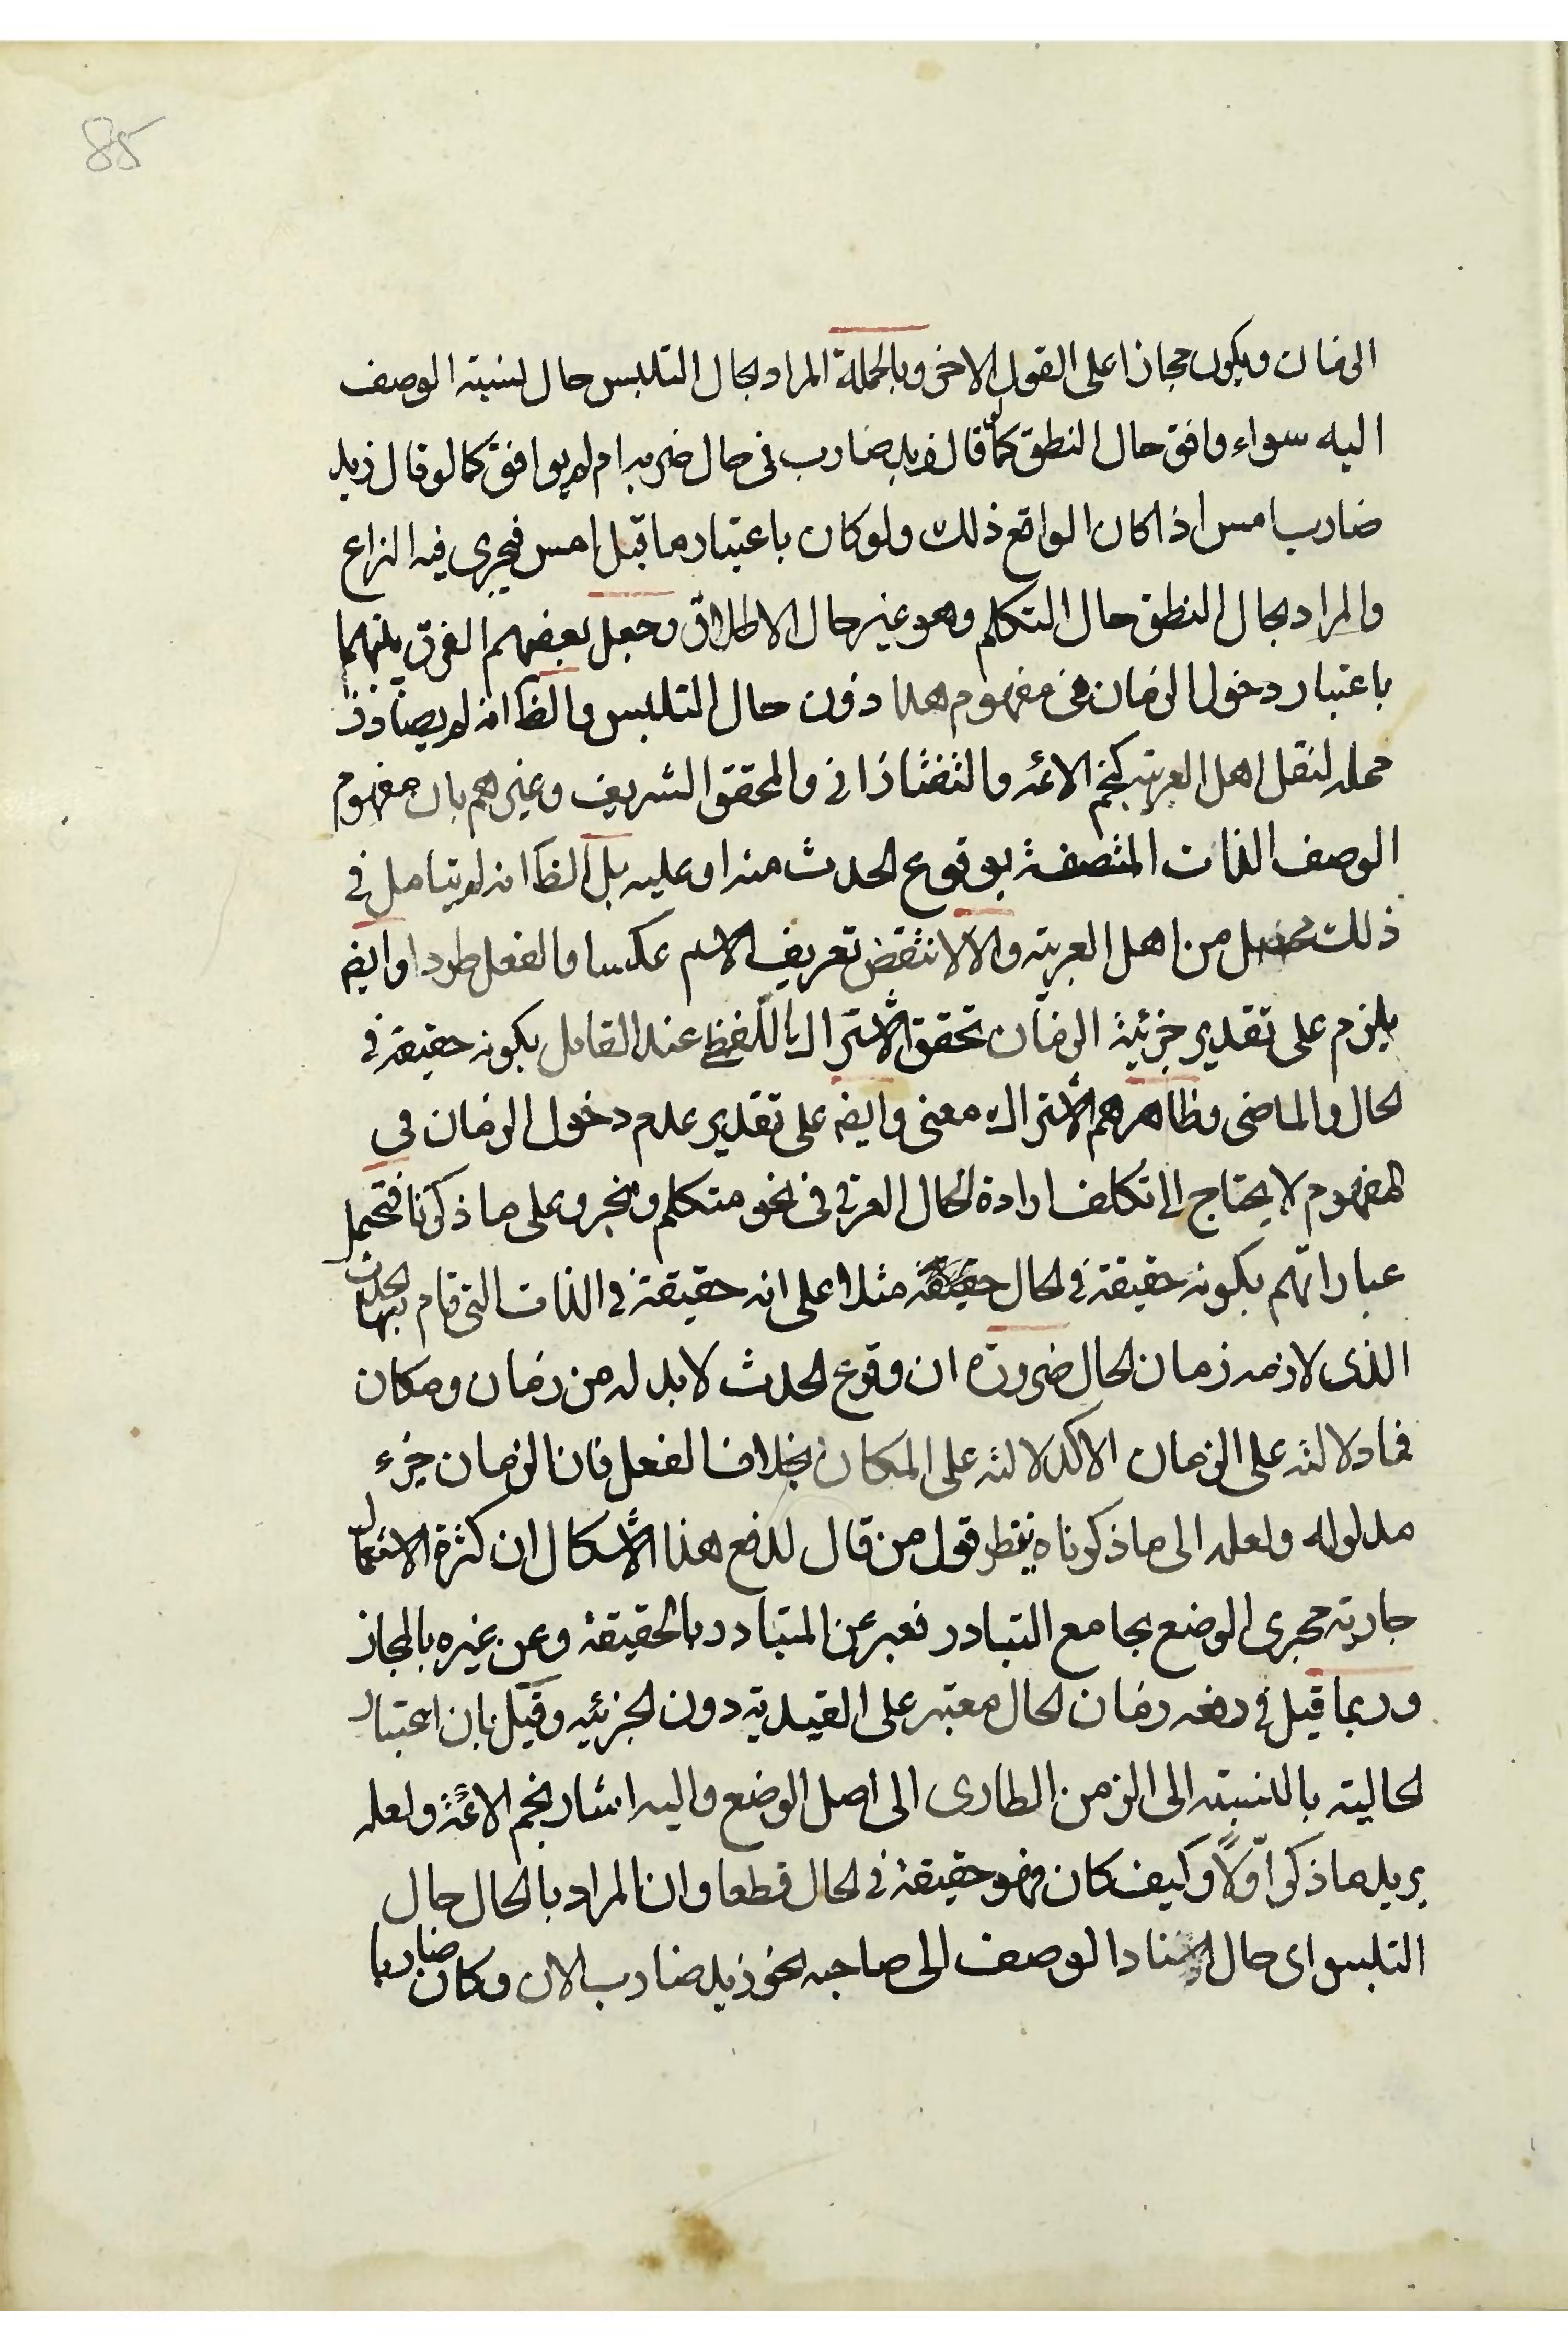 85
الزمان ويكون مجازا على القول الاخر وبالجملة المراد بحال التلبس حال نسبته الوصف
اليه سواء وافق حال النطق كما لو قال زيد ضارب في حال ضربه ام لم يوافق كما لو قال زيد
ضارب امس اذا كان الواقع ذلك ولو كان باعتبار ما قبل امس فيجرى فيه النزاع
والمراد بحال النطق حال التكلم وهو غير حال الاطلاق وجعل بعضهم الفرق بينهما
باعتبار دخول الزمان في مفهوم هذا دون حال التلبس والظ انه لم يصادف
محله لنقل اهل العربية كنجم الائمه والتفتازانى والمحقق الشريف وغيرهم بان مفهوم
الوصف الذات المتصفة بوقوع الحدث منه او عليه بل الظ انه لم يتامل في
ذلك من اهل العربية والا لانتقض تعريف الاسم عكسا والفعل طردا وايض
يلزم على تقدير جزئية الزمان تحقق الاشتراك اللفظى عند القائل بكونه حقيقة في
الحال والماضى وظاهرهم الاشتراك معنى وايض على تقدير عدم دخول الزمان في
المفهوم لا يحتاج الى تكلف ارادة الحال العرفى في نحو متكلم ومخبر وعلى ما ذكرنا فتحمل
عباراتهم بكونه حقيقة في الحال مثلا على انه حقيقة في الذات التى قام بها الحدث
الذى لازمه زمان الحال ضرورة ان وقوع الحدث لا بد له من زمان ومكان
فما دلالته على الزمان الا كدلالته على المكان بخلاف الفعل فان الزمان جزء
مدلوله ولعله الى ما ذكرناه ينظر قول من قال لدفع هذا الاشكال ان كثرة الاستعمال
جارية مجرى الوضع بجامع التبادر فعبر عن المتبادر بالحقيقة وعن غيره بالمجاز
وربما قيل في دفعه زمان الحال معتبر على القيدية دون الجزئيه وقيل بان اعتبار
الحالية بالنسبته الى الزمن الطارى الى اصل الوضع واليه اشار نجم الائمة ولعله
يريد ما ذكر اولا وكيف كان فهو حقيقة في الحال قطعا وان المراد بالحال حال
التلبس اى حال اسناد الوصف الى صاحبه نحو زيد ضارب الان وكان ضاربا